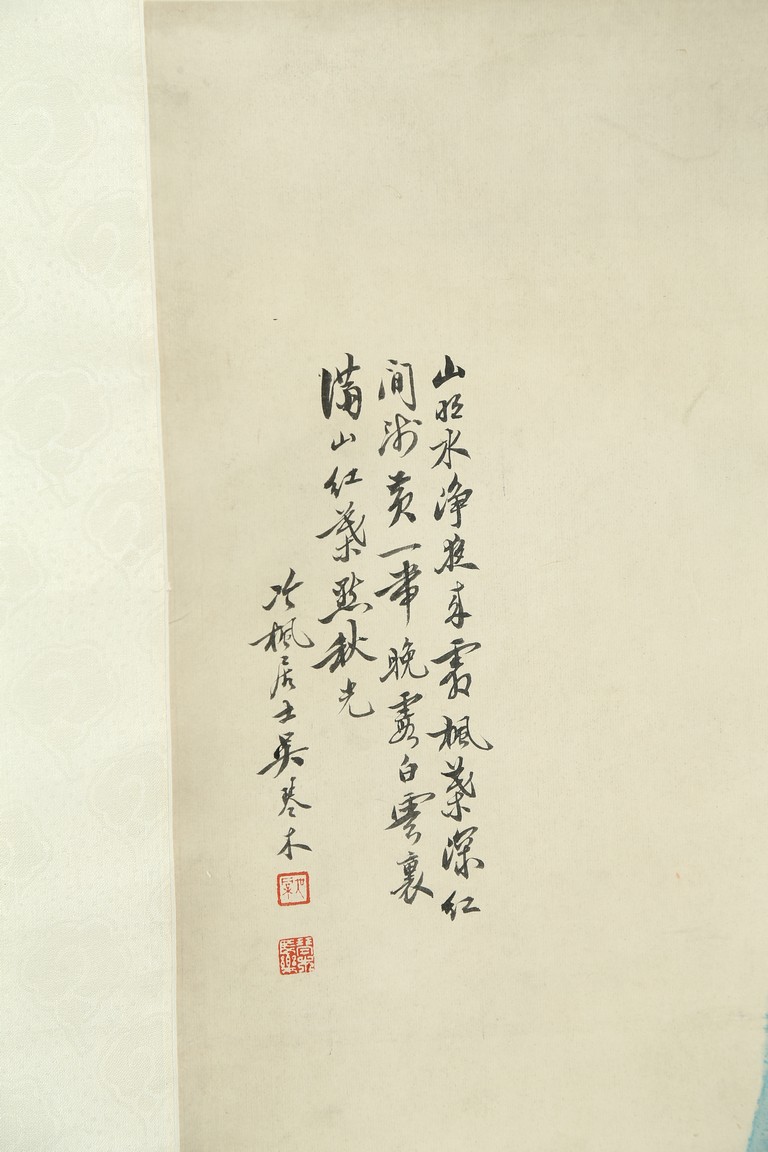 山明水净夜来霜枫葉深红
间浅黄一带晚霞白雲裏
满山红葉點秋光
冷枫居士吴琴木